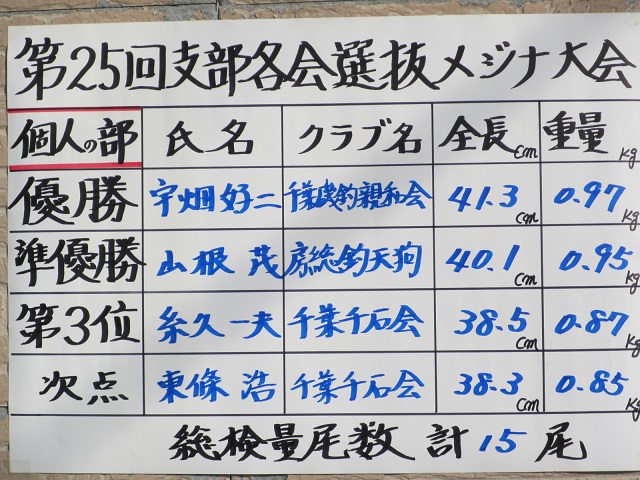 第25回支部各会選抜メジナ大会
個人の部 氏名 クラブ名 全長cm 重量kg
優勝 宇畑好二 千葉磯釣親和会 41.3cm 0.97kg
準優勝 山根茂 房総釣天狗 40.1cm 0.95kg
第3位 糸久一夫 千葉千石会 38.5cm 0.87kg
次点 東條浩 千葉千石会 38.3cm 0.85kg
総検量尾数 計15尾